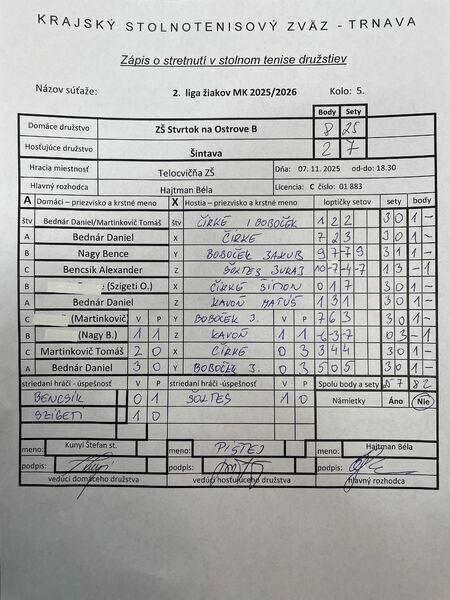 KRAJSKÝ STOLNOTENISOVÝ ZVÄZ - TRNAVA
Zápis o stretnutí v stolnom tenise družstiev
Názov súťaže: 2. liga žiakov MK 2025/2026 Kolo: 5.
Body Sety
Domáce družstvo ZŠ Štvrtok na Ostrove B 8 25
Hosťujúce družstvo Šintava 2 7
Hracia miestnosť Telocvičňa ZŠ Dňa: 07. 11. 2025 od-do: 18.30
Hlavný rozhodca Hajtman Béla Licencia C číslo: 01 883
A Domáci - priezvisko a krstné meno X Hostia - priezvisko a krstné meno loptičky setov sety body
štv Bednár Daniel/Martinkovič Tomáš štv ČÍRKE I BOBOČEK 1 2 2 3 0 1 -
A Bednár Daniel X ČÍRKE 7 2 3 3 0 1 -
B Nagy Bence Y BOBOČEK JAKUB 9 -7 7 9 3 1 1 -
C Bencsík Alexander Z ŠOLTES JURAJ 10 -7 -4 -7 1 3 - 1
B (Szigeti O.) X ČÍRKE ŠIMON 0 1 7 3 0 1 -
A Bednár Daniel Z KAVOŇ MATÚŠ 1 3 1 3 0 1 -
C (Martinkovič V P Y BOBOČEK J. V P 7 6 3 3 0 1 -
B (Nagy B.) 1 1 Z KAVOŇ 1 1 -6 -3 -7 0 3 - 1
C Martinkovič Tomáš 2 0 X ČÍRKE 0 3 3 4 4 3 0 1 -
A Bednár Daniel 3 0 Y BOBOČEK J. 0 3 5 0 5 3 0 1 -
striedaní hráči - úspešnosť V P striedaní hráči -úspešnosť V P Spolu body a sety 25 7 8 2
BENCSÍK 0 1 ŠOLTES 1 0 Námietky Áno Nie
SZIGETI 1 0
meno: Kunyi Štefan st. meno: meno: Hajtman Béla
podpis: podpis: podpis:
vedúci domáceho družstva vedúci hosťujúceho družstva hlavný rozhodca